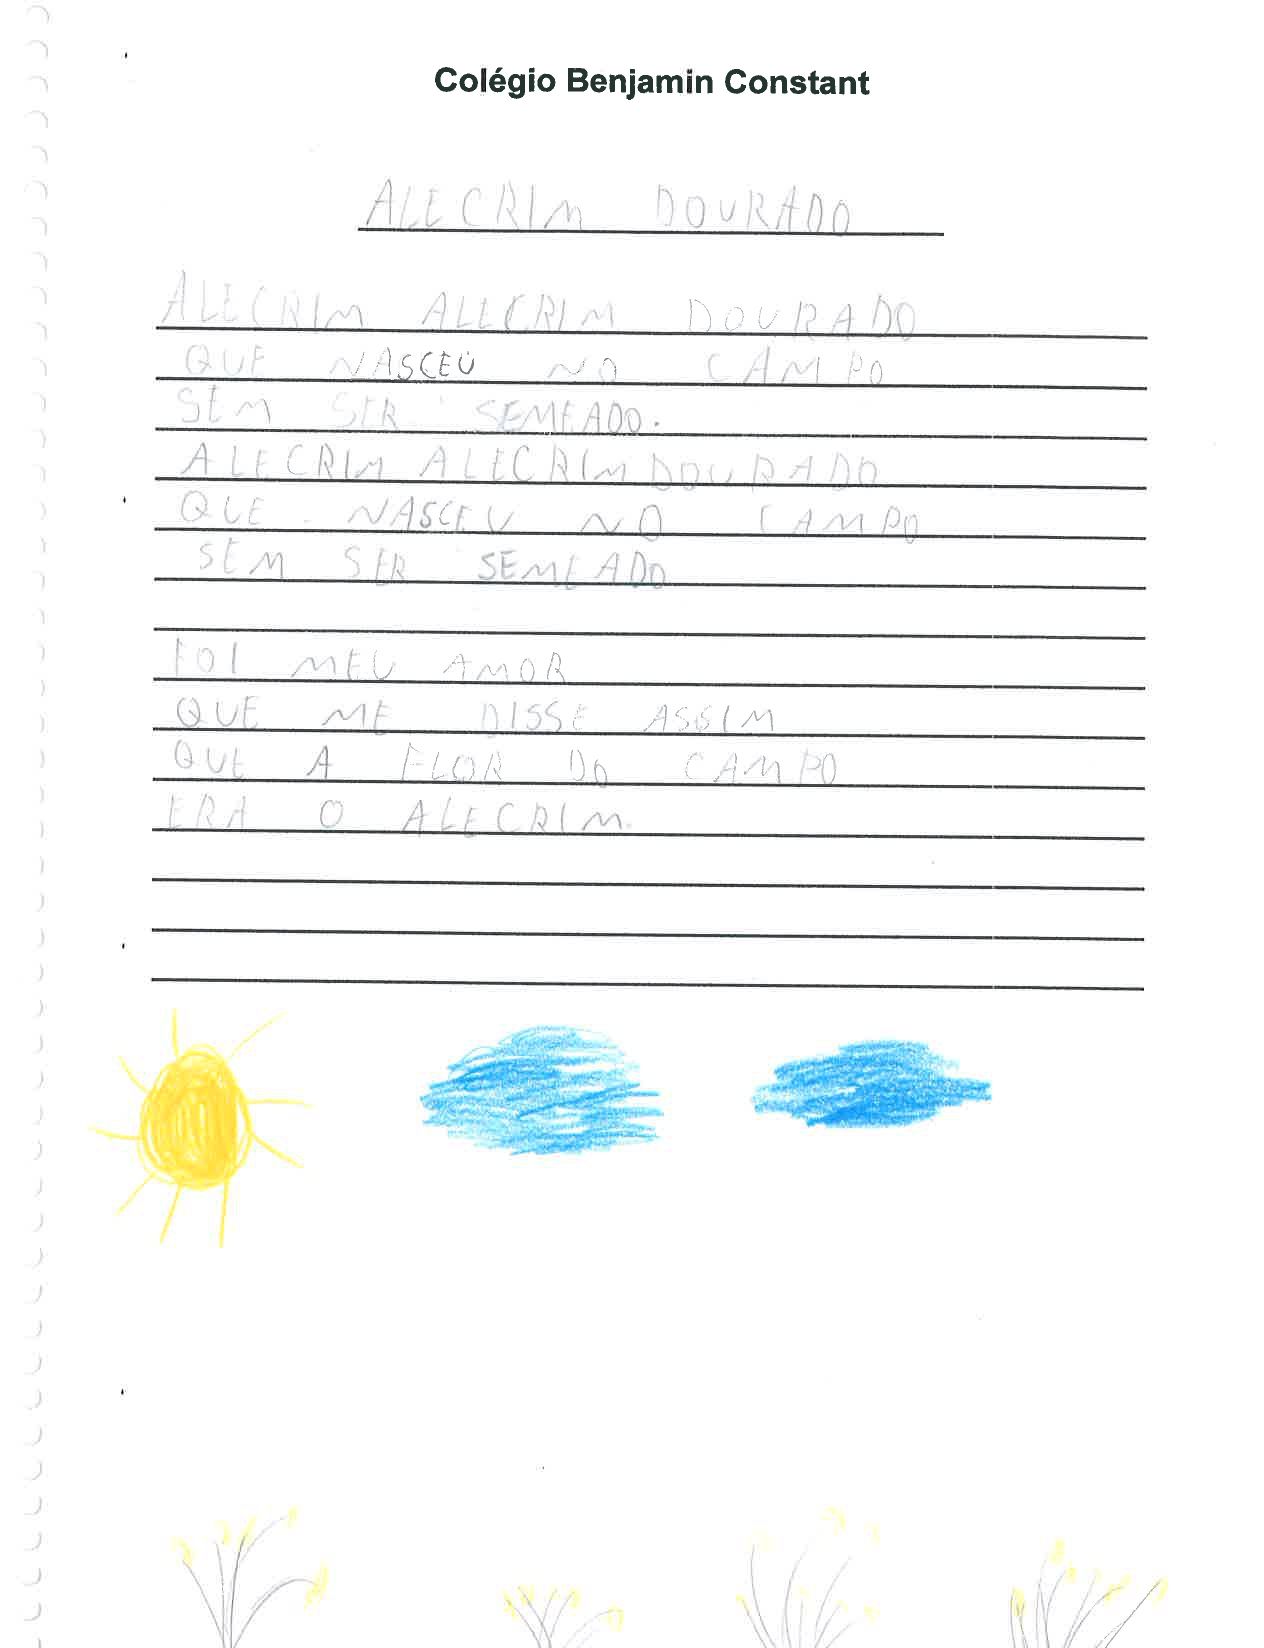 Colégio Benjamin Constant
ALECRIM DOURADO
ALECRIM ALECRIM DOURADO
QUE NASCEU NO CAMPO
SEM SER SEMEADO.
ALECRIM ALECRIM DOURADO
QUE NASCEU NO CAMPO
SEM SER SEMEADO
FOI MEU AMOR
QUE ME DISSE ASSIM
QUE A FLOR DO CAMPO
ERA O ALECRIM.